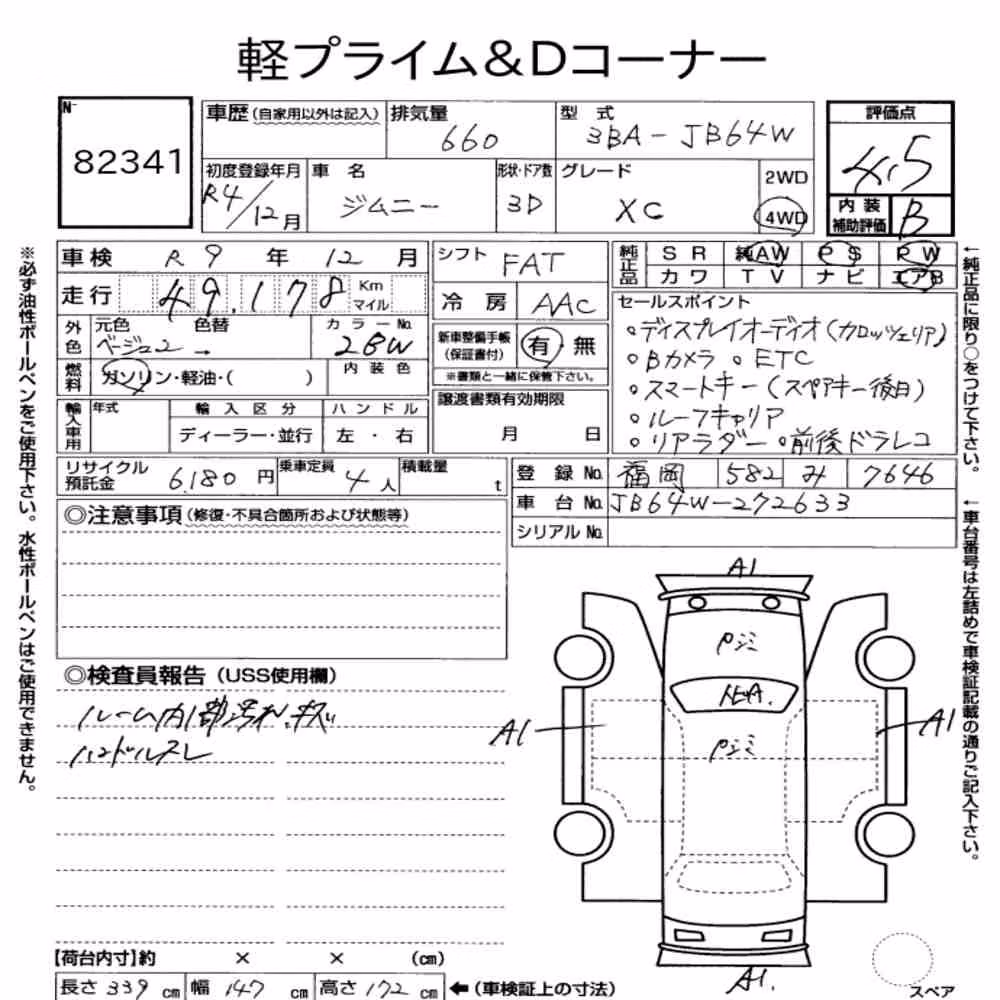 軽プライム&Dコーナー
No.
82341
車歴(自家用以外は記入) 排気量 660 型式 3BA-JB64W
評価点 4.5
初度登録年月 R4/12月 車名 ジムニー 形状・ドア数 3D グレード XC 2WD 4WD
内装補助評価 B
車検 R9年12月 シフト FAT
純正品 SR 純AW PS PW
カワ TV ナビ エアB
走行 49,178 Km マイル 冷房 AAC
セールスポイント
外色 元色 ベージュ2 色替 → カラーNo. 2BW
新車整備手帳(保証書付) 有 無
※書類と一緒に保管下さい。
燃料 ガソリン・軽油・( ) 内装色
。ディスプレイオーディオ(カロッツェリア)
。Bカメラ 。ETC
。スマートキー(スペアキー後日)
。ルーフキャリア
。リアラダー 。前後ドラレコ
輸入車用 年式 輸入区分 ハンドル
ディーラー・並行 左・右
譲渡書類有効期限
月 日
リサイクル預託金 6,180円 乗車定員 4人 積載量 t
登録No. 福岡 582 み 7646
車台No. JB64W-272633
シリアルNo.
◎注意事項(修復・不具合箇所および状態等)
◎検査員報告(USS使用欄)
ルーム内1部汚れ、キズ
ハンドルスレ
A1
A1
A1
A1
【荷台内寸】約 × × (cm)
長さ 339 cm 幅 147 cm 高さ 172 cm ←(車検証上の寸法)
スペア
※必ず油性ボールペンをご使用下さい。水性ボールペンはご使用できません。
←純正品に限り○をつけて下さい。
←車台番号は左詰めで車検証記載の通りご記入下さい。